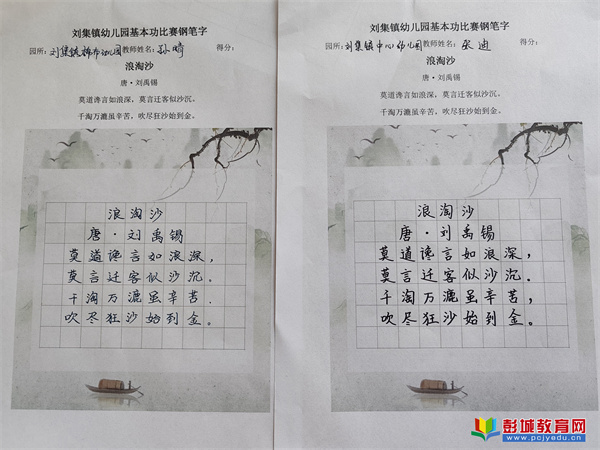 刘集镇幼儿园基本功比赛钢笔字
园所：刘集镇棉布幼儿园教师姓名：孙晴 得分：
浪淘沙
唐·刘禹锡
莫道谗言如浪深，莫言迁客似沙沉。
千淘万漉虽辛苦，吹尽狂沙始到金。
浪淘沙
唐·刘禹锡
莫道谗言如浪深，
莫言迁客似沙沉.
千淘万漉虽辛苦.
吹尽狂沙始到金。
刘集镇幼儿园基本功比赛钢笔字
园所：刘集镇中心幼儿园教师姓名：张迪 得分：
浪淘沙
唐·刘禹锡
莫道谗言如浪深，莫言迁客似沙沉。
千淘万漉虽辛苦，吹尽狂沙始到金。
浪淘沙
唐·刘禹锡
莫道谗言如浪深，
莫言迁客似沙沉.
千淘万漉虽辛苦，
吹尽狂沙始到金。
彭城教育网
www.pcjyedu.cn